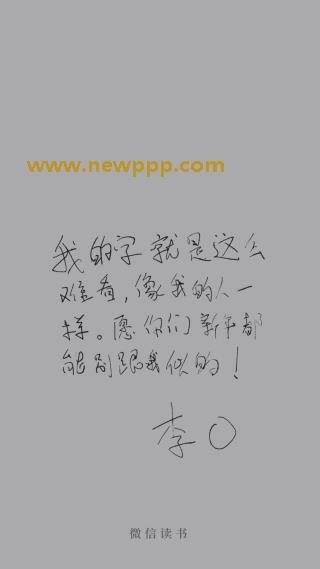 www.newppp.com
我的字就是这么
难看，像我的人一
样。愿你们新年都
能别跟我似的！
李〇
微信读书